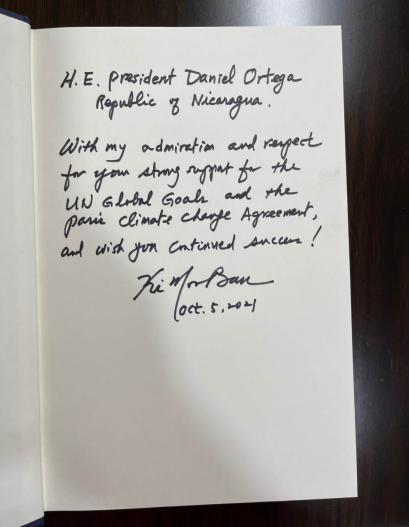 H.E. President Daniel Ortega
Republic of Nicaragua.
With my admiration and respect
for your strong support for the
UN Global Goals and the
Paris Climate Change Agreement,
and wish you continued success!
Ki Moon Ban
Oct. 5, 2021